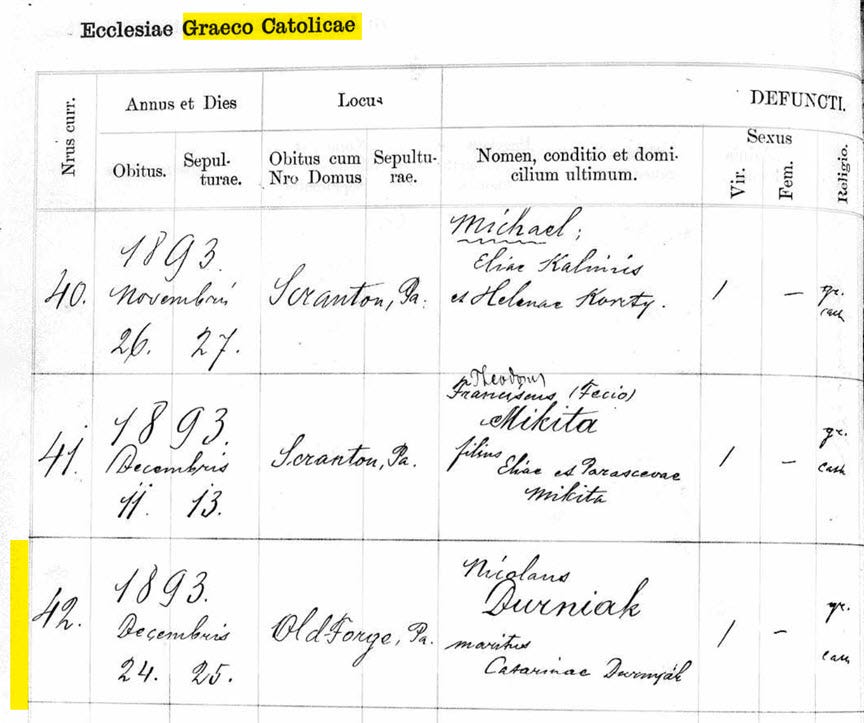 Ecclesiae Graeco Catolicae
Nrus curr.
Annus et Dies
Locus
DEFUNCTI.
Obitus.
Sepul-
turae.
Obitus cum
Nro Domus
Sepultu-
rae.
Nomen, conditio et domi-
cilium ultimum.
Sexus
Vir.
Fem.
Religio.
40.
1893.
Novembris
26. 27.
Scranton, Pa.
Michael;
Eliae
et Helenae
1 –
gr.
cath
41.
1893.
Decembris
11. 13.
Scranton, Pa.
Theodorus
Franciscus (Fecio)
Mikita
filius
Eliae et Parascevae
Mikita
1 –
gr.
cath
42.
1893.
Decembris
24. 25.
Old Forge, Pa.
Nicolaus
Durniak
maritus
Catarinae Durnyák
1 –
gr.
cath